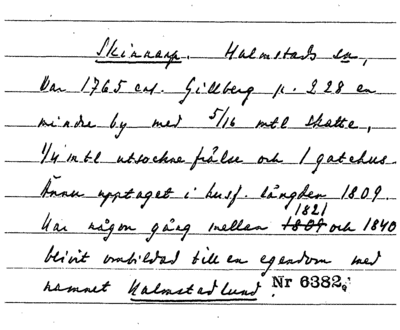 Skinnarp. Halmstads sn,
Var 1765 enl. Gillberg p. 228 en
mindre by med 5/16 mtl skatte,
1/4 mtl utsockne frälse och 1 gatehus.
Ännu upptaget i husf. längden 1809.
Har någon gång mellan 1809 1821 och 1840
blivit ombildad till en egendom med
namnet Halmstadlund. Nr 6382.